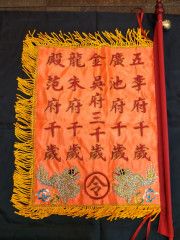 五李府千歲
廣池府千歲
金吳府三千歲
龍朱府千歲
殿范府千歲
令